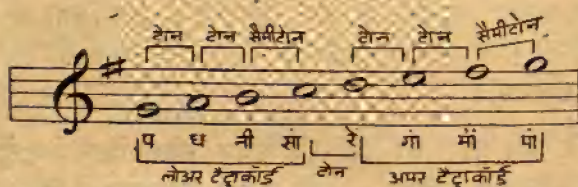 टोन टोन सैमीटोन टोन टोन सैमीटोन
प ध नी सां रें गां मां पां
लोअर टैट्राकॉर्ड टोन अपर टैट्राकॉर्ड